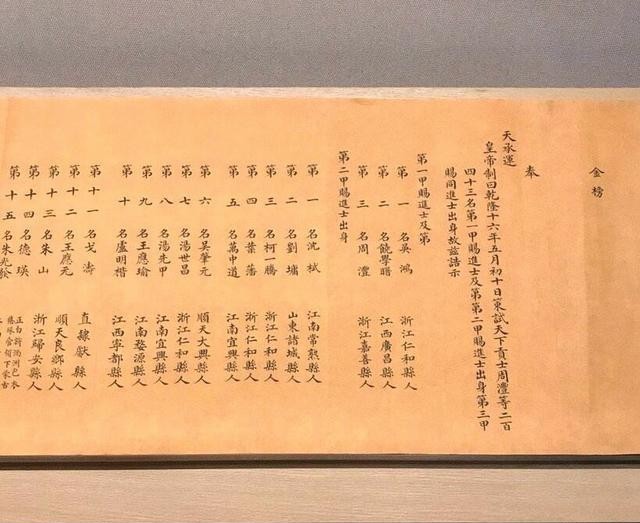 金榜
奉
天承運
皇帝制曰乾隆十六年五月初十日策試天下貢士周澧等二百
四十三名第一甲賜進士及第第二甲賜進士出身第三甲
賜同進士出身故茲誥示
第一甲賜進士及第
第一名吳鴻 浙江仁和縣人
第二名饒學曙 江西廣昌縣人
第三名周澧 浙江嘉善縣人
第二甲賜進士出身
第一名沈栻 江南常熟縣人
第二名劉墉 山東諸城縣人
第三名柯一騰 浙江仁和縣人
第四名葉藩 浙江仁和縣人
第五名萬中道 江南宜興縣人
第六名吳肇元 順天大興縣人
第七名湯世昌 浙江仁和縣人
第八名湯先甲 江南宜興縣人
第九名王應瑜 江南婺源縣人
第十名盧明楷 江西寧都縣人
第十一名戈濤 直隸獻縣人
第十二名王應元 順天良鄉縣人
第十三名朱山 浙江歸安縣人
第十四名德瑛 正白旗滿洲包衣
第十五名朱光發